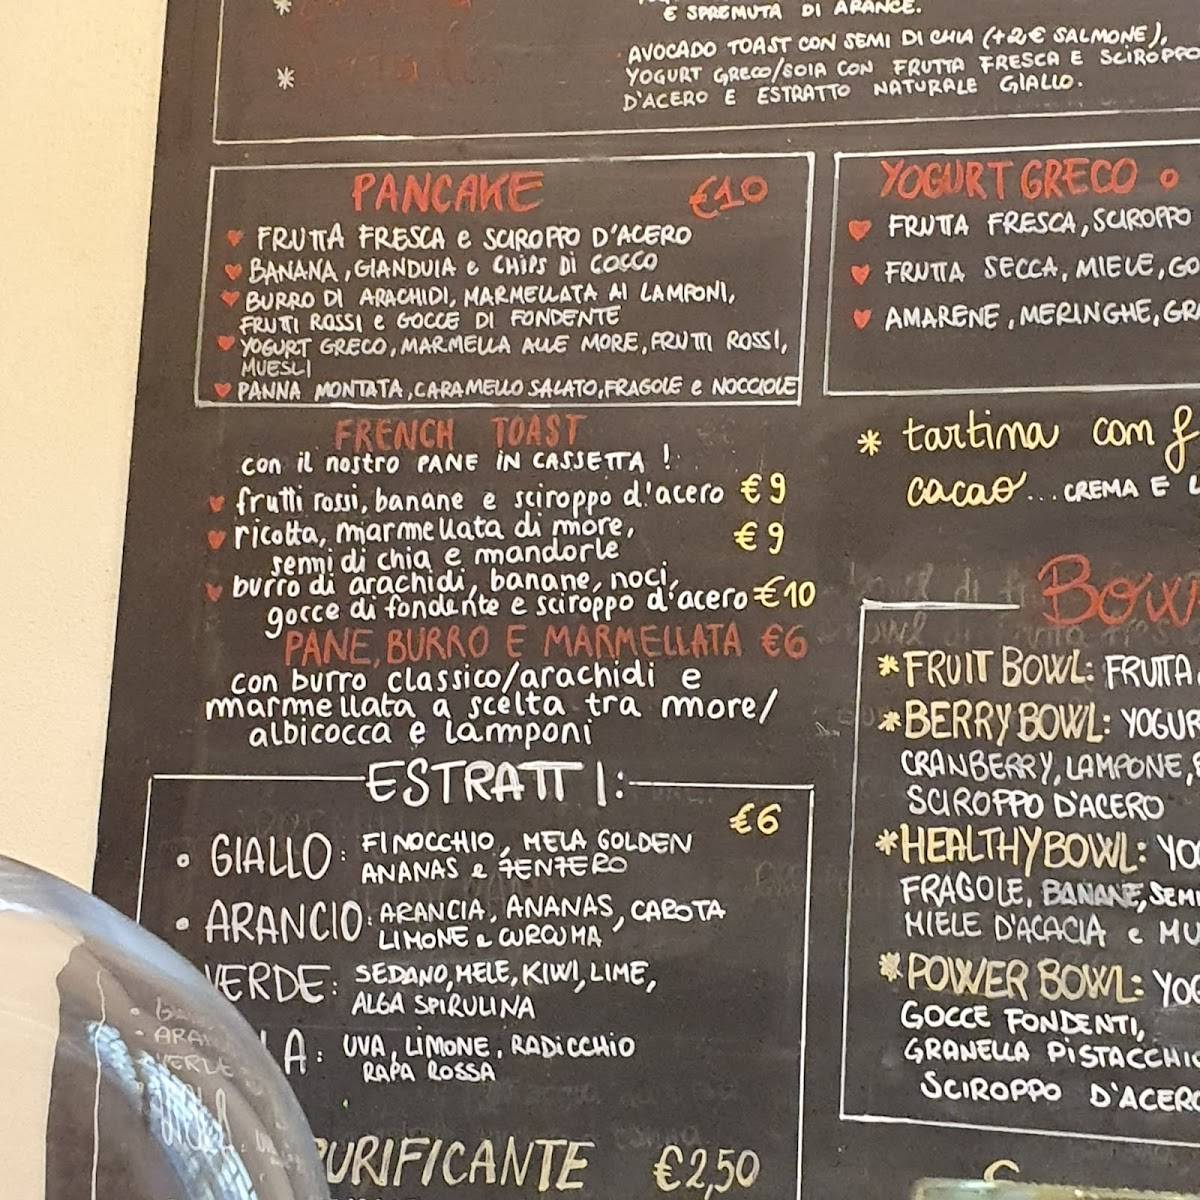 E SPREMUTA DI ARANCE.
*
AVOCADO TOAST CON SEMI DI CHIA (+2€ SALMONE),
*
YOGURT GRECO/SOIA CON FRUTTA FRESCA E SCIROPPO
D'ACERO E ESTRATTO NATURALE GIALLO.
PANCAKE €10
FRUTTA FRESCA e SCIROPPO D'ACERO
BANANA, GIANDUIA e CHIPS DI COCCO
BURRO DI ARACHIDI, MARMELLATA AI LAMPONI,
FRUTTI ROSSI e GOCCE DI FONDENTE
YOGURT GRECO, MARMELLA ALLE MORE, FRUTTI ROSSI,
MUESLI
PANNA MONTATA, CARAMELLO SALATO, FRAGOLE e NOCCIOLE
FRENCH TOAST
con il nostro PANE IN CASSETTA !
frutti rossi, banane e sciroppo d'acero €9
ricotta, marmellata di more, €9
semi di chia e mandorle
burro di arachidi, banane, noci,
gocce di fondente e sciroppo d'acero €10
PANE, BURRO E MARMELLATA €6
con burro classico/arachidi e
marmellata a scelta tra more/
albicocca e lamponi
ESTRATTI:
€6
• GIALLO: FINOCCHIO, MELA GOLDEN
ANANAS e ZENZERO
• ARANCIO: ARANCIA, ANANAS, CAROTA
LIMONE e CURCUMA
VERDE: SEDANO, MELE, KIWI, LIME,
ALGA SPIRULINA
LA: UVA, LIMONE, RADICCHIO
RAPA ROSSA
PURIFICANTE €2,50
YOGURT GRECO o
FRUTTA FRESCA, SCIROPPO
FRUTTA SECCA, MIELE, GO
AMARENE, MERINGHE, GRA
* tartina con f
cacao... CREMA E L
BOW
*FRUIT BOWL: FRUTTA
*BERRY BOWL: YOGUR
CRANBERRY, LAMPONE,
SCIROPPO D'ACERO
*HEALTHY BOWL: YOG
FRAGOLE, BANANE, SEMI
MIELE D'ACACIA e MU
*POWER BOWL: YOG
GOCCE FONDENTI,
GRANELLA PISTACCHIO
SCIROPPO D'ACERO